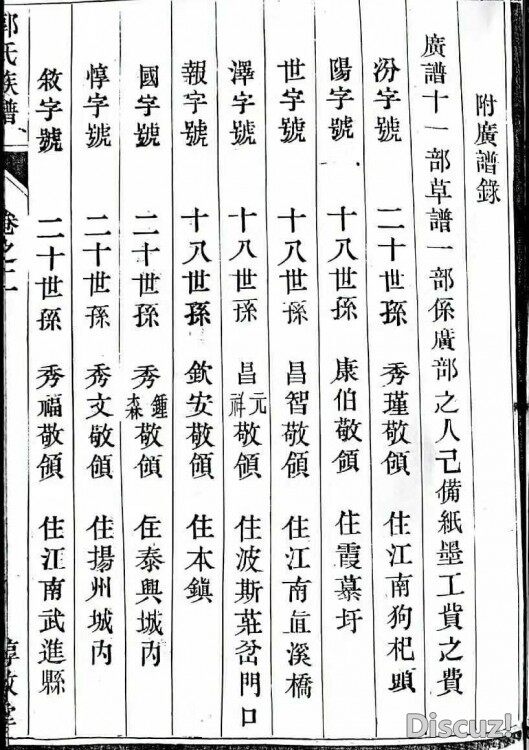 附廣譜錄
廣譜十一部草譜一部係廣部之人己備紙墨工貲之費
汾字號 二十世孫 秀瑾敬領 住江南狗杞頭
陽字號 十八世孫 康伯敬領 住霞慕圩
世字號 十八世孫 昌智敬領 住江南直溪橋
澤字號 十八世孫 昌元祥敬領 住波斯莊岔門口
報字號 十八世孫 欽安敬領 住本鎮
國字號 二十世孫 秀鍾森敬領 住泰興城內
惇字號 二十世孫 秀文敬領 住揚州城內
敘字號 二十世孫 秀福敬領 住江南武進縣
郭氏族譜 卷之 惇敘堂
Discuz!